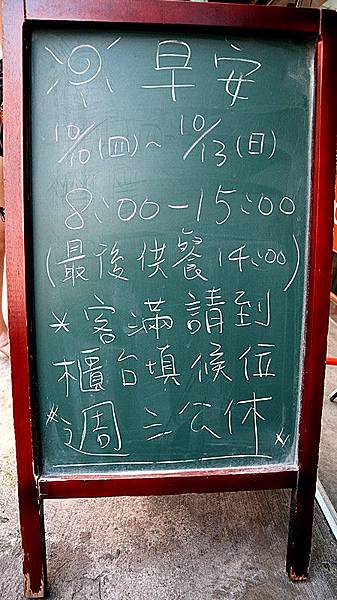 早安
10/10(四)~10/13(日)
8:00-15:00
(最後供餐14:00)
*客滿請到
櫃台填候位
*週三公休*